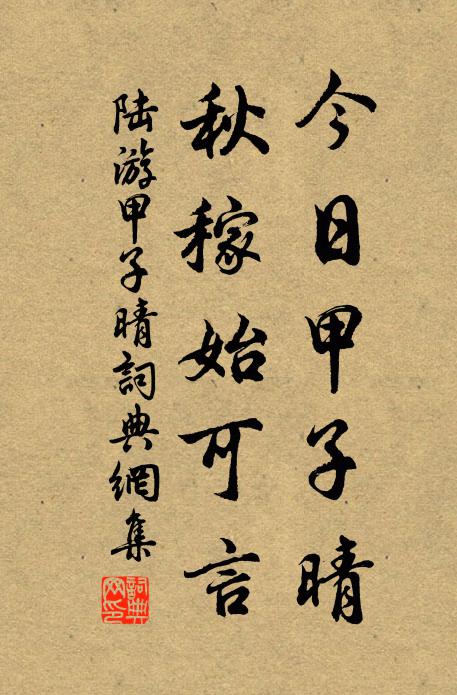 今日甲子晴
秋稼始可言
陸游甲子晴詞典網集
詞典網印